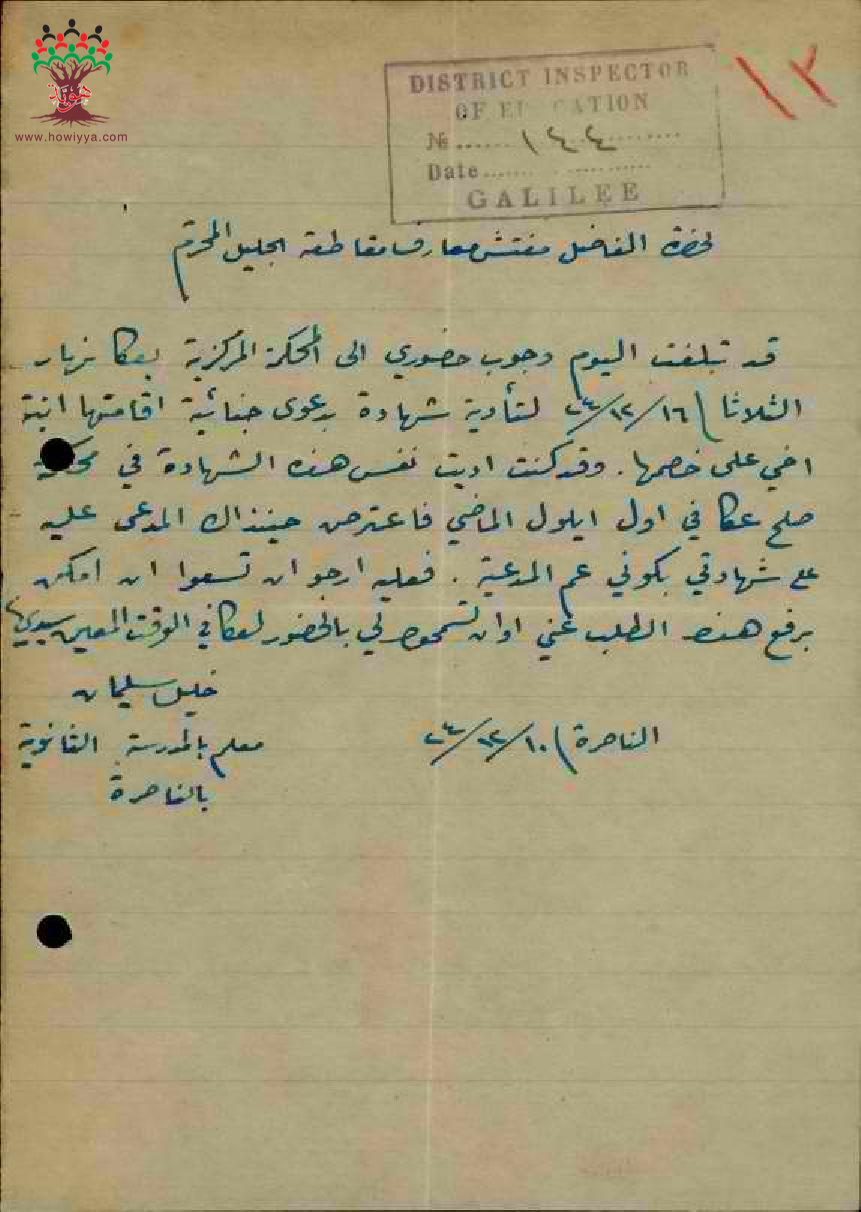 هوية
www.howiyya.com
DISTRICT INSPECTOR
OF EDUCATION
№ ...... ١٤٤ ........
Date ......................
GALILEE
١٢
لحضرة الفاضل مفتش معارف مقاطعة الجليل المحترم
قد تبلغت اليوم وجوب حضوري الى المحكمة المركزية بعكا نهار
الثلاثا ١٦/١٢/٢٤ لتأدية شهادة بدعوى جنائية اقامتها ابنة
اخي على خصمها. وقد كنت اديت نفس هذه الشهادة في محكمة
صلح عكا في اول ايلول الماضي فاعترض حينذاك المدعى عليه
على شهادتي بكوني عم المدعية. فعليه ارجو ان تسعوا ان امكن
برفع هذا الطلب عني او ان تسمحوا لي بالحضور لعكا في الوقت المعين سيدي
خليل سليمان
الناصرة ١٠/١٢/٢٤
معلم بالمدرسة الثانوية
بالناصرة